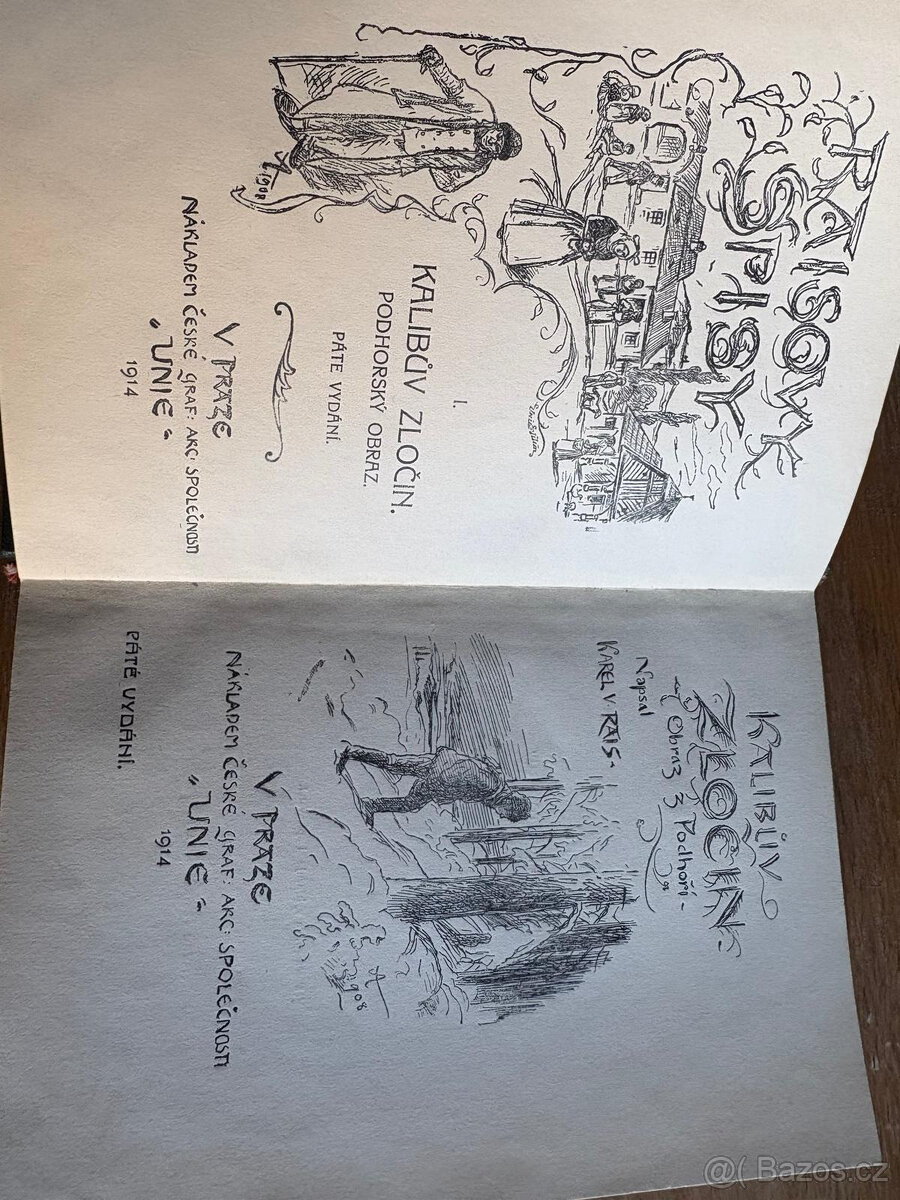 RAISOVY
SPISY
I.
KALIBŮV ZLOČIN.
PODHORSKÝ OBRAZ.
PÁTE VYDÁNÍ.
V PRAZE
NÁKLADEM ČESKÉ GRAF: AKC: SPOLEČNOSTI
„UNIE“
1914
1908
KALIBŮV
ZLOČIN
Obraz z Podhoří
Napsal
KAREL V. RAIS
1908
V PRAZE
NÁKLADEM ČESKÉ GRAF: AKC: SPOLEČNOSTI
„UNIE“
1914
PÁTÉ VYDÁNÍ.
@( Bazos.cz